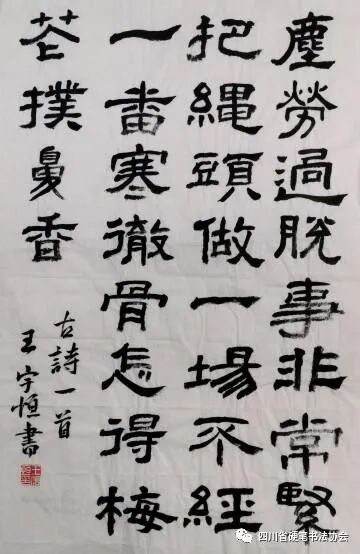 塵勞過脫事非常賢
把繩頭做一場不經
一番寒徹骨怎得梅
花撲鼻香
古詩一首
王宇恒書
四川省硬笔书法协会